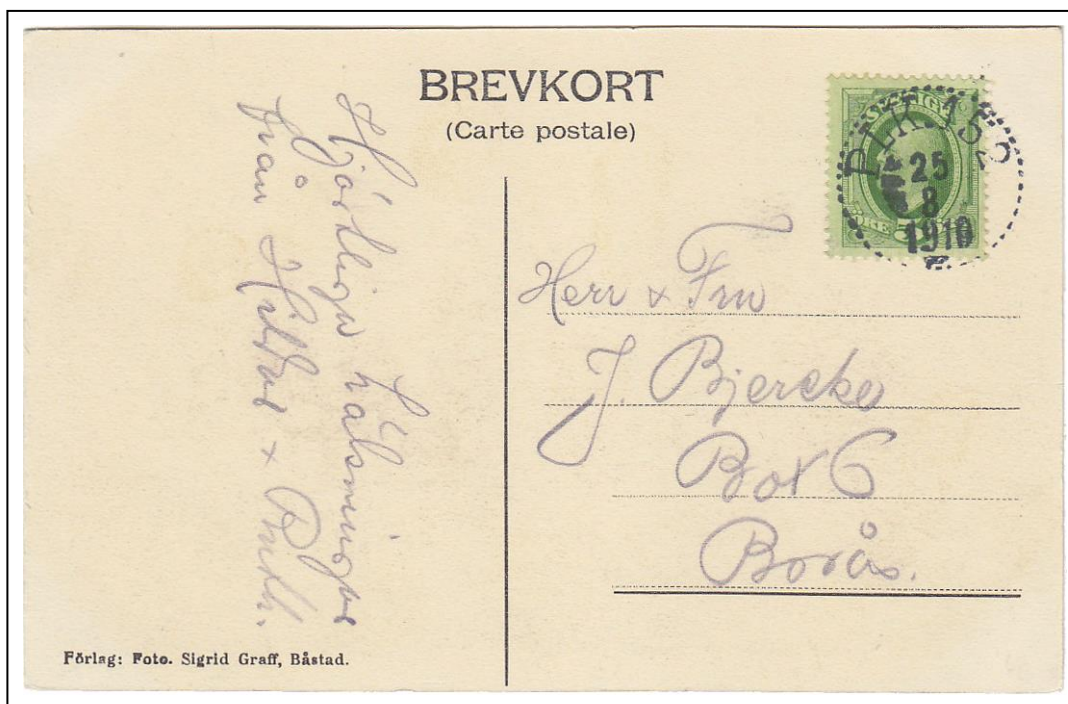 BREVKORT
(Carte postale)
PLK. 152
25
8
1910
Hjärtliga hälsningar
från & Ruth.
Herr & Fru
J. Bjercke
Box 6
Borås.
Förlag: Foto. Sigrid Graff, Båstad.